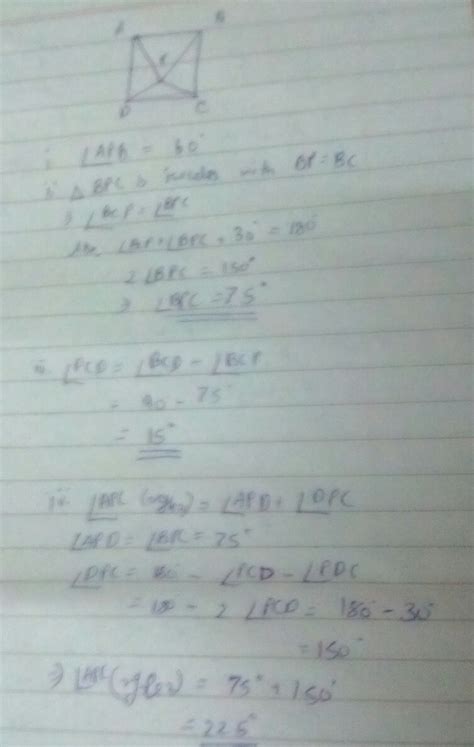 A B
P
D C
i ∠APB = 60°
ii △ BPC is isosceles with BP = BC
⇒ ∠BCP = ∠BPC
∠BCP + ∠BPC + 30° = 180°
2 ∠BPC = 150°
⇒ ∠BPC = 75°
iii ∠PCD = ∠BCD - ∠BCP
= 90 - 75°
= 15°
iv ∠APC (reflex) = ∠APD + ∠DPC
∠APD = ∠BPC = 75°
∠DPC = 180° - ∠PCD - ∠PDC
= 180 - 2 ∠PCD = 180° - 30°
= 150°
⇒ ∠APC (reflex) = 75° + 150°
= 225°